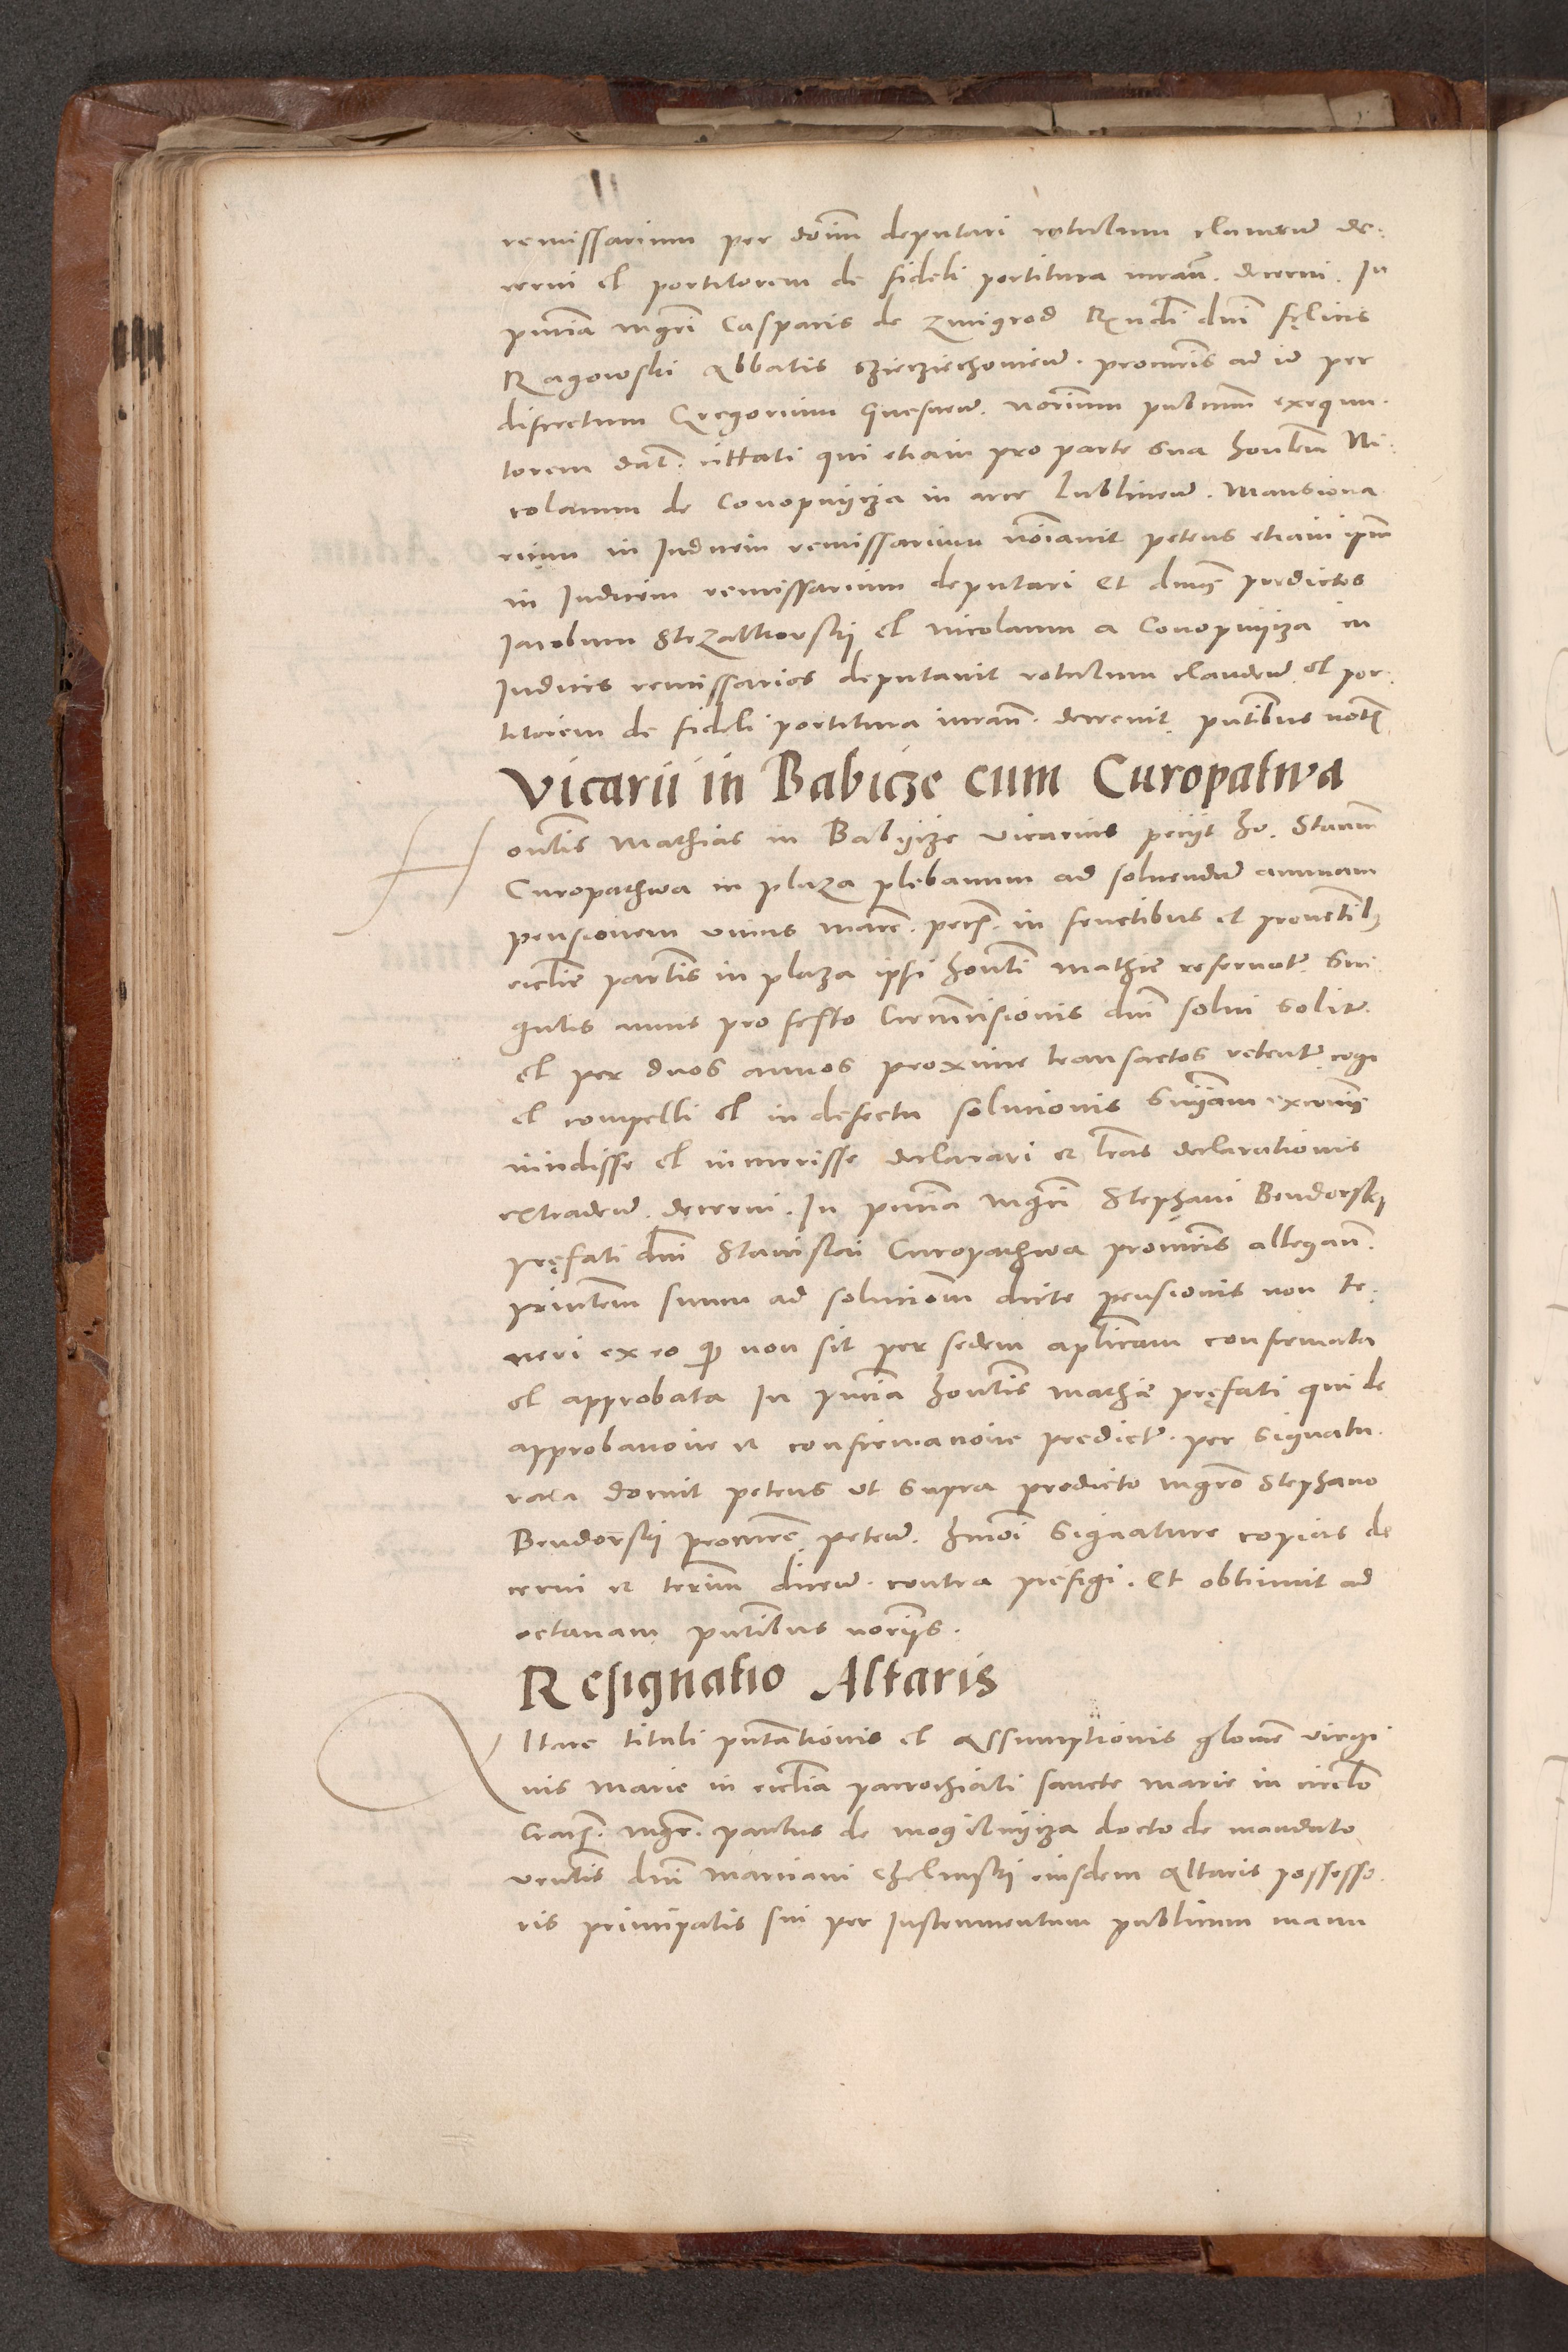 remissarium per domin deputari rotulum clauden de-
cerni et portitorem de fideli portitura iuran. decerni. In
pncia mgri Casparis de zmigrod Rndi dni fęlicis
Ragowski Abbatis Szieczziechouien. procuris ad id per
discretum Gregorium Gnesnen. notium publicum exequu-
torem dat. cittati qui etiam pro parte sua honlem Ni-
colaum de Conopnyiza in arce Lublinen. Mansiona
rium in Iudicem remissarium noiauit petens etiam ipm
in Iudicem remissarium deputari Et dnus predictos
Iacobum Strzalkowskj et nicolaum a Conopnyiza in
Iudices remissarios deputauit rotulum clauden et por-
titorem de fideli portitura iuran. decreuit pntibus notis
Vicarii in Babicze cum Curopatwa
Hontis Mathias in Babyize vicarius pecijt ho. Stanm
Curopathwa in plaza plebanum ad soluendum annuam
pensionem vnius marc. pecs. in fructibus et prouetib9
ecclie partis in plaza ipsi honti mathie reseruat Sin
gulis annis pro festo Circumcisionis dni solui solit
et per duos annos proxime transactos retent cogi
et compelli et in defectu solucionis Snyam excois
incidisse et incurrisse declarari et lras declarationis
extraden. decerni. In pncia mgri Stephani Bendorskj
pręfati dni Stanislai Curopathwa procuris allegan.
princlem suum ad solucionm dicte pensionis non te-
neri ex eo q non sit per sedem aplicam confirmata
et approbata In pncia hontis mathie pręfati qui de
approbacione et confirmacione predict. per signatu-
ram docuit petens vt supra predicto mgro Stephano
Bendorskj procure peten. hmoi signature copias de
cerni et termin dicen. contra prefigi. Et obtinuit ad
octauam pntibus norijs.
Resignatio Altaris
Altare tituli pntationis et Assumptionis gloriose virgi
nis Marie in ecclia parrochiali sancte marie in circulo
Crac. mgr. paulus de mogilnyiza docto de mandato
venlis dni marciani Chelmskj eiusdem Altaris possesso-
ris principalis sui per Instrumentum publicum manu